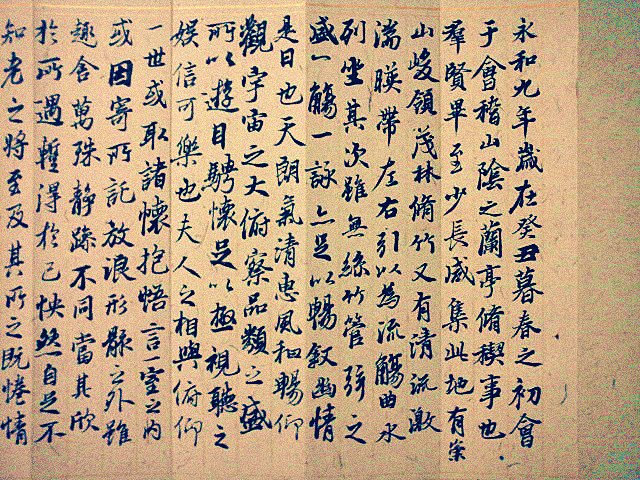 永和九年歲在癸丑暮春之初會
于會稽山陰之蘭亭脩禊事也
羣賢畢至少長咸集此地有崇
山峻領茂林脩竹又有清流激
湍暎帶左右引以為流觴曲水
列坐其次雖無絲竹管弦之
盛一觴一詠亦足以暢叙幽情
是日也天朗氣清惠風和暢仰
觀宇宙之大俯察品類之盛
所以遊目騁懷足以極視聽之
娛信可樂也夫人之相與俯仰
一世或取諸懷抱悟言一室之內
或因寄所託放浪形骸之外雖
趣舍萬殊靜躁不同當其欣
於所遇暫得於己怏然自足不
知老之將至及其所之既惓情